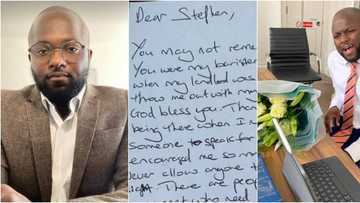 Dear Stephen,
You may not reme
You were my barriste
when my landlord was
throw me out with m
God bless you. Than
being there when I n
someone to speak for
encouraged me so m
ever allow anyone t
There are peo
who need